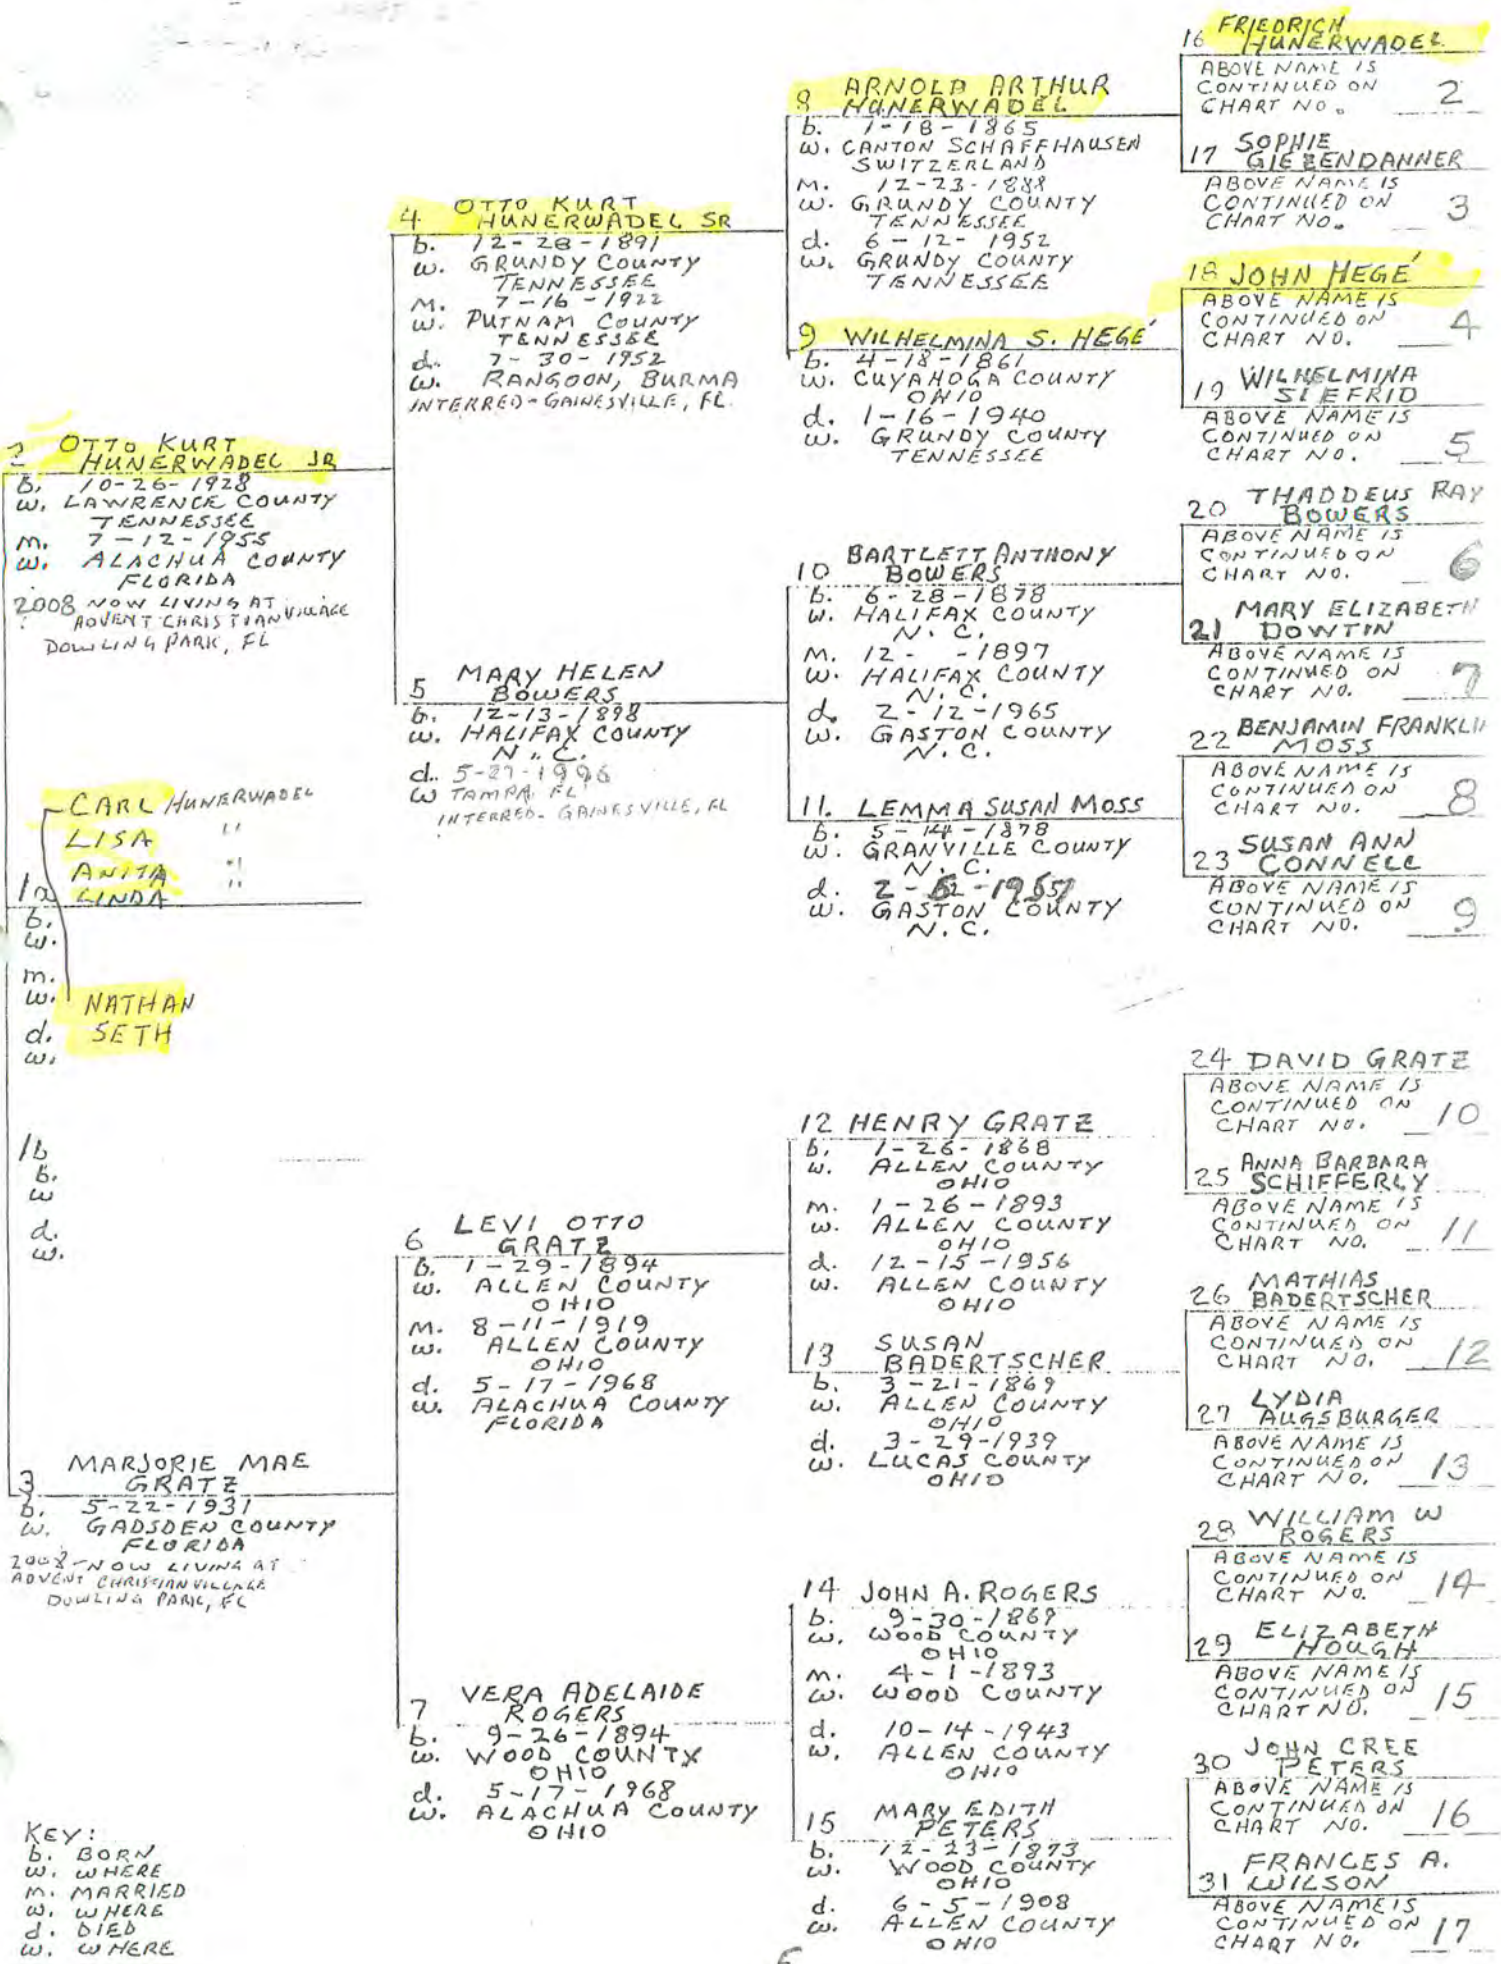 2 OTTO KURT
HUNERWADEL JR
B. 10-26-1928
W. LAWRENCE COUNTY
TENNESSEE
M. 7-12-1955
W. ALACHUA COUNTY
FLORIDA
2008 NOW LIVING AT
ADVENT CHRISTIAN VILLAGE
DOWLING PARK, FL
CARL HUNERWADEL
LISA "
ANITA "
1a LINDA "
b.
w.
m.
w. NATHAN
d. SETH
w.
1b
b.
w
d.
w.
3 MARJORIE MAE
GRATZ
b. 5-22-1931
w. GADSDEN COUNTY
FLORIDA
2008-NOW LIVING AT
ADVENT CHRISTIAN VILLAGE
DOWLING PARK, FL
KEY:
b. BORN
w. WHERE
m. MARRIED
w. WHERE
d. DIED
w. WHERE
4 OTTO KURT
HUNERWADEL SR
b. 12-28-1891
w. GRUNDY COUNTY
TENNESSEE
M. 7-16-1922
w. PUTNAM COUNTY
TENNESSEE
d. 7-30-1952
w. RANGOON, BURMA
INTERRED-GAINESVILLE, FL.
5 MARY HELEN
BOWERS
b. 12-13-1898
w. HALIFAX COUNTY
N.C.
d. 5-27-1996
W TAMPA FL
INTERRED- GAINESVILLE, FL
6 LEVI OTTO
GRATZ
b. 1-29-1894
w. ALLEN COUNTY
OHIO
M. 8-11-1919
w. ALLEN COUNTY
OHIO
d. 5-17-1968
w. ALACHUA COUNTY
FLORIDA
7 VERA ADELAIDE
ROGERS
b. 9-26-1894
w. WOOD COUNTY
OHIO
d. 5-17-1968
w. ALACHUA COUNTY
OHIO
8 ARNOLD ARTHUR
HUNERWADEL
b. 1-18-1865
w. CANTON SCHAFFHAUSEN
SWITZERLAND
M. 12-23-1888
w. GRUNDY COUNTY
TENNESSEE
d. 6-12-1952
w. GRUNDY COUNTY
TENNESSEE
9 WILHELMINA S. HEGÉ
b. 4-18-1861
w. CUYAHOGA COUNTY
OHIO
d. 1-16-1940
w. GRUNDY COUNTY
TENNESSEE
10 BARTLETT ANTHONY
BOWERS
b. 6-28-1878
w. HALIFAX COUNTY
N.C.
M. 12- -1897
w. HALIFAX COUNTY
N.C.
d. 2-12-1965
w. GASTON COUNTY
N.C.
11. LEMMA SUSAN MOSS
b. 5-14-1878
w. GRANVILLE COUNTY
N.C.
d.
w. GASTON COUNTY
N.C.
12 HENRY GRATZ
b. 1-26-1868
w. ALLEN COUNTY
OHIO
M. 1-26-1893
w. ALLEN COUNTY
OHIO
d. 12-15-1956
w. ALLEN COUNTY
OHIO
13 SUSAN
BADERTSCHER
b. 3-21-1869
w. ALLEN COUNTY
OHIO
d. 3-29-1939
w. LUCAS COUNTY
OHIO
14 JOHN A. ROGERS
b. 9-30-1869
w. WOOD COUNTY
OHIO
M. 4-1-1893
w. WOOD COUNTY
d. 10-14-1943
w. ALLEN COUNTY
OHIO
15 MARY EDITH
PETERS
b. 12-23-1873
w. WOOD COUNTY
OHIO
d. 6-5-1908
w. ALLEN COUNTY
OHIO
16 FRIEDRICH
HUNERWADEL
ABOVE NAME IS
CONTINUED ON
CHART NO. 2
17 SOPHIE
GIEZENDANNER
ABOVE NAME IS
CONTINUED ON
CHART NO. 3
18 JOHN HEGÉ
ABOVE NAME IS
CONTINUED ON
CHART NO. 4
19 WILHELMINA
SIEFRID
ABOVE NAME IS
CONTINUED ON
CHART NO. 5
20 THADDEUS RAY
BOWERS
ABOVE NAME IS
CONTINUED ON
CHART NO. 6
21 MARY ELIZABETH
DOWTIN
ABOVE NAME IS
CONTINUED ON
CHART NO. 7
22 BENJAMIN FRANKLIN
MOSS
ABOVE NAME IS
CONTINUED ON
CHART NO. 8
23 SUSAN ANN
CONNELL
ABOVE NAME IS
CONTINUED ON
CHART NO. 9
24 DAVID GRATZ
ABOVE NAME IS
CONTINUED ON
CHART NO. 10
25 ANNA BARBARA
SCHIFFERLY
ABOVE NAME IS
CONTINUED ON
CHART NO. 11
26 MATHIAS
BADERTSCHER
ABOVE NAME IS
CONTINUED ON
CHART NO. 12
27 LYDIA
AUGSBURGER
ABOVE NAME IS
CONTINUED ON
CHART NO. 13
28 WILLIAM W
ROGERS
ABOVE NAME IS
CONTINUED ON
CHART NO. 14
29 ELIZABETH
HOUGH
ABOVE NAME IS
CONTINUED ON
CHART NO. 15
30 JOHN CREE
PETERS
ABOVE NAME IS
CONTINUED ON
CHART NO. 16
31 FRANCES A.
WILSON
ABOVE NAME IS
CONTINUED ON
CHART NO. 17